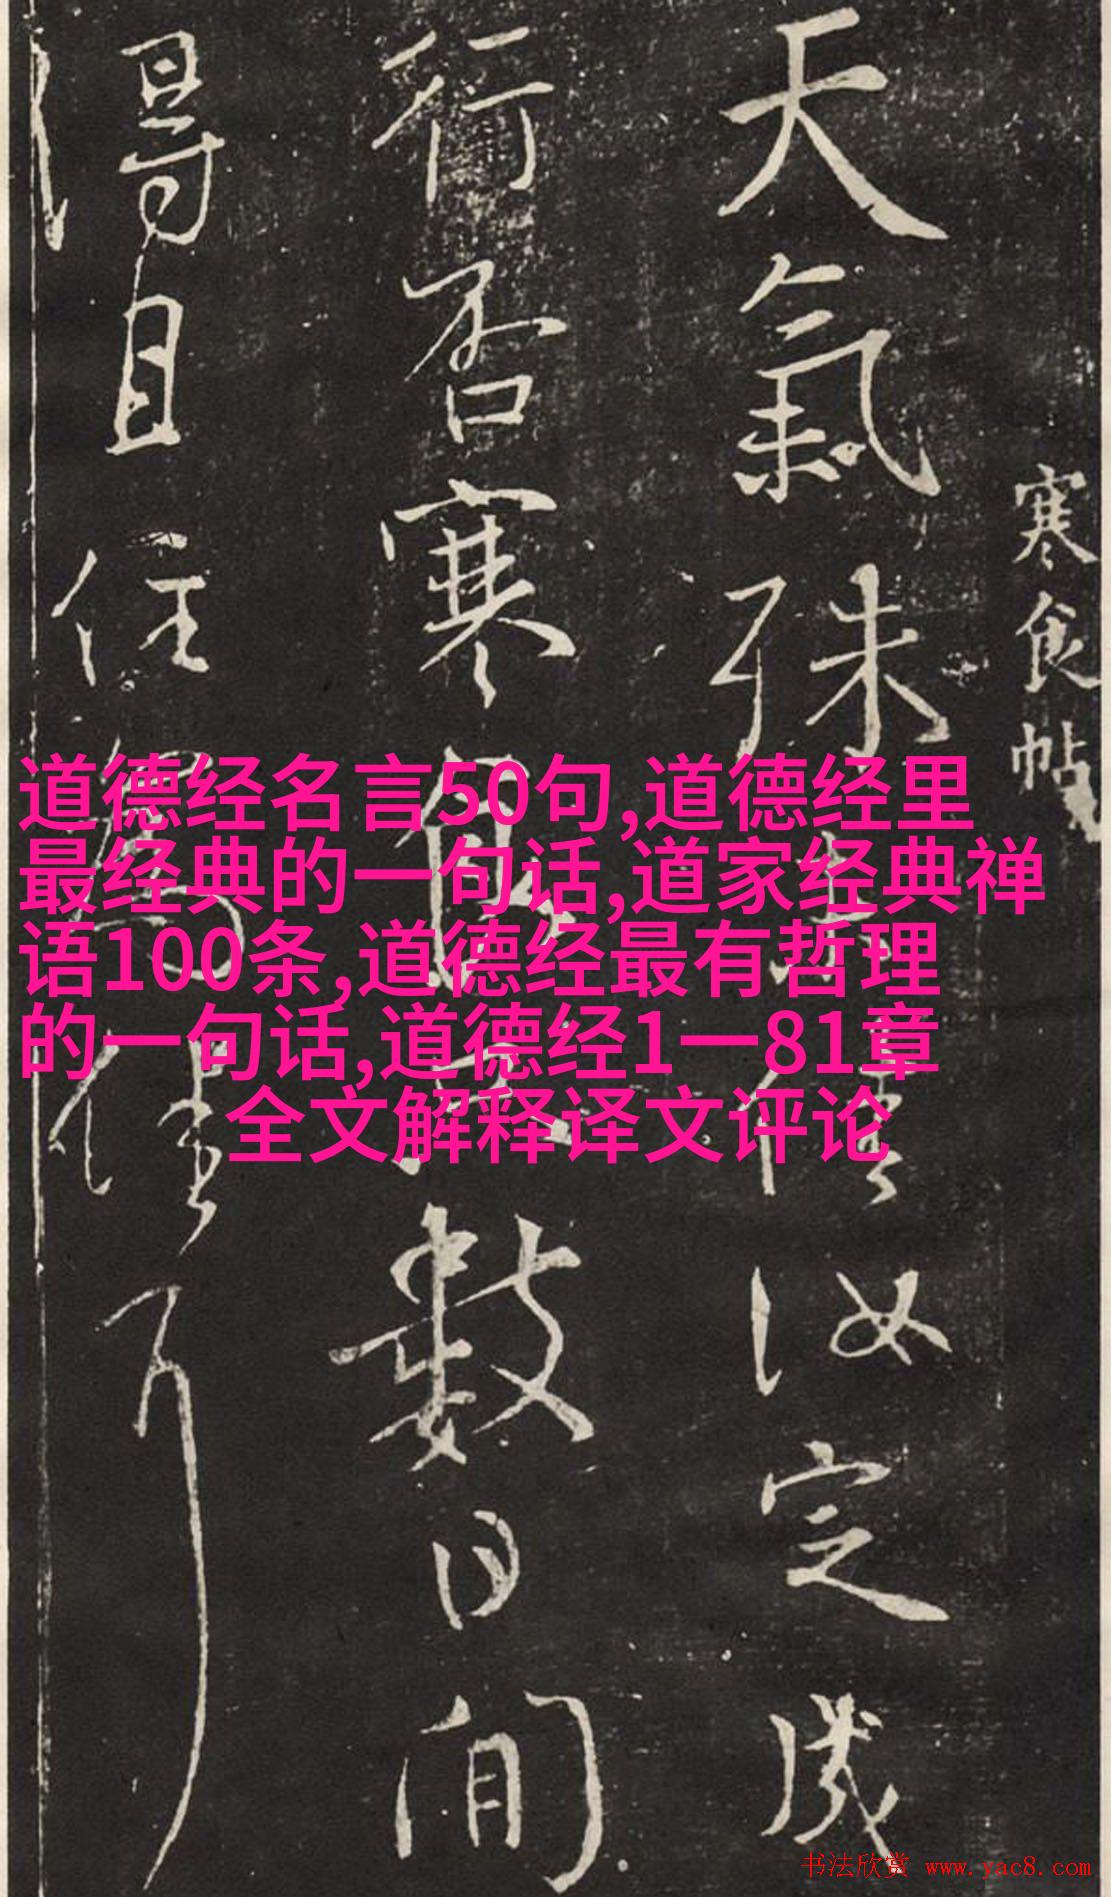 寒食帖
天氣殊未佳汝定成
行否寒食只數日間
得且住為佳耳
道德经名言50句,道德经里
最经典的一句话,道家经典禅
语100条,道德经最有哲理
的一句话,道德经1一81章
全文解释译文评论
书法欣赏 www.yac8.com